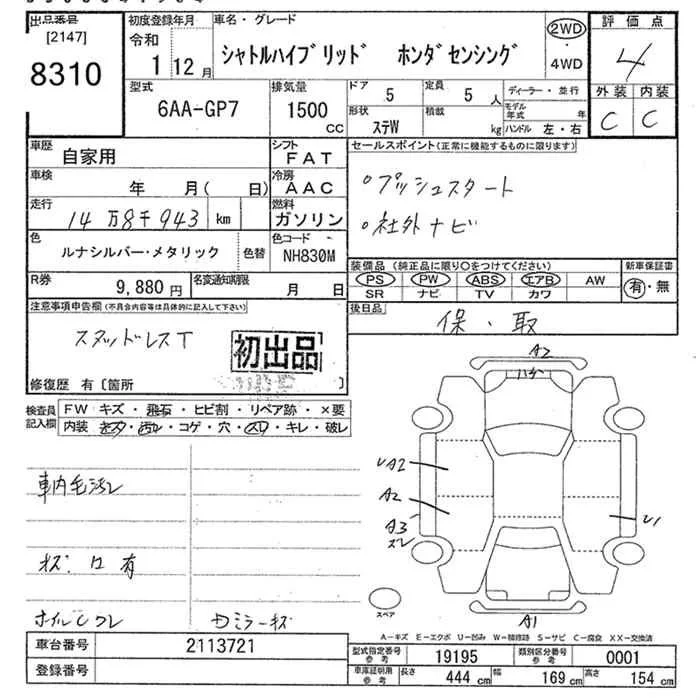 出品番号
[2147]
8310
初度登録年月
令和
1 12月
車名・グレード
シャトルハイブリッド ホンダセンシング
2WD
・
4WD
評価点
4
外装 内装
C C
型式
6AA-GP7
排気量
1500
CC
ドア
5
定員
5 人
形状
ステW
積載
kg
ディーラー・並行
モデル年式 年
ハンドル 左・右
車歴
自家用
シフト
FAT
車検
年 月( 日)
冷房
AAC
走行
14万8千943 km
燃料
ガソリン
色
ルナシルバー・メタリック
色替
色コード
NH830M
R券
9,880円
名変通知期限
月 日
セールスポイント(正常に機能するものに限ります)
○プッシュスタート
○社外ナビ
装備品 (純正品に限り○をつけてください)
PS PW ABS エアB AW
SR ナビ TV カワ
新車保証書
有・無
後日品
保・取
注意事項申告欄(不具合内容等は具体的に記入して下さい)
スタッドレスT
初出品
修復歴 有〔箇所 〕
検査員記入欄
FW キズ・飛石・ヒビ割・リペア跡・×要
内装 キズ・汚れ・コゲ・穴・スレ・キレ・破レ
A2
A2
A2
A3
スレ
A1
スペア
A-キズ E-エクボ U-凹み W-補修跡 S-サビ C-腐食 XX-交換済
車台番号
2113721
登録番号
型式指定番号
参考
19195
類別区分番号
参考
0001
車庫証明用
参考
長さ
444 cm
幅
169 cm
高さ
154 cm